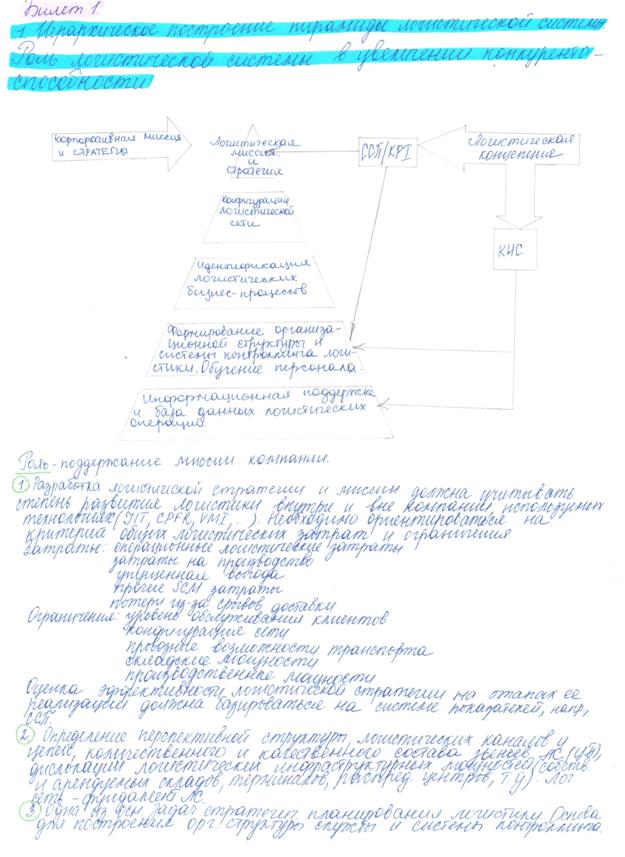 Билет 1.
1. Иерархическое построение пирамиды логистической системы
Роль логистической системы в увеличении конкуренто-
способности
корпоративная миссия
и стратегия
Логистическая
миссия
и
стратегия
ССП/KPI
Логистическая
концепция
Конфигурация
логистической
сети
КИС
Идентификация
логистических
бизнес-процессов
Формирование организа-
ционной структуры и
системы контроллинга логи-
стики. Обучение персонала.
Информационная поддержка
и база данных логистических
операций
Роль - поддержание миссии компании.
1) Разработка логистической стратегии и миссии должна учитывать
степень развития логистики внутри и вне компании, используемых
технологиях (JIT, CPFR, VMI, ..). Необходимо ориентироваться на
критерий общих логистических затрат и ограничения
Затраты: операционные логистические затраты
затраты на производство
упущенная выгода
прочие SCM затраты
потери из-за срывов доставки
Ограничения: уровень обслуживания клиентов
конфигурация сети
провозные возможности транспорта
складские мощности
производственные мощности
Оценка эффективности логистической стратегии на этапах ее
реализации должна базироваться на системе показателей, напр,
ССП.
2) Определение перспективной структуры, логистических каналов и
цепей, количественного и качественного состава звеньев ЛС (ЦП),
дислокации логистических инфраструктурных мощностей (собств.
и арендуемых складов, терминалов, распред центров, т д). Лог.
сеть - фундамент ЛС.
3) Одна из осн. задач стратегич планирования логистики. Основа
для построения орг. структуры службы и системы контроллинга.